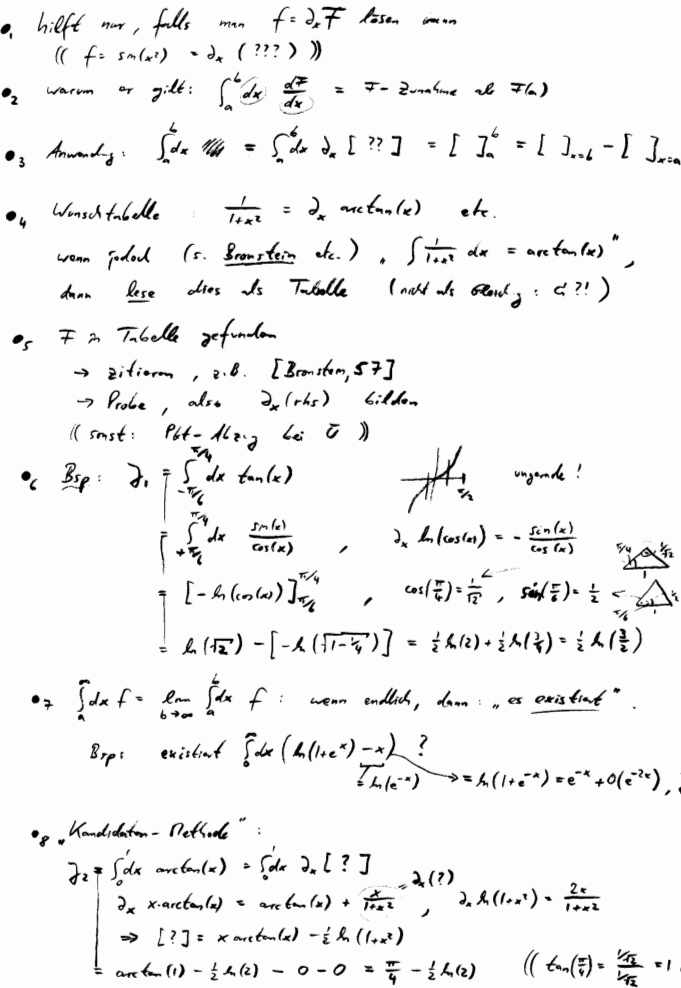 •1 hilft nur, falls man f = ∂ₓ F lösen kann
(( f = sin(x²) = ∂ₓ ( ??? ) ))
•2 warum er gilt: ∫_a^b dx dF/dx = F-Zunahme ab F(a)
•3 Anwendg: ∫_a^b dx = ∫_a^b dx ∂ₓ [ ?? ] = [ ]_a^b = [ ]_{x=b} − [ ]_{x=a}
•4 Wunschtabelle : 1/(1+x²) = ∂ₓ arctan(x) etc.
wenn jedoch (s. Bronstein etc.) „ ∫ 1/(1+x²) dx = arctan(x) ",
dann lese dies als Tabelle (nicht als Gleichg : ?! )
•5 F in Tabelle gefunden
→ zitieren, z.B. [Bronstein, 57]
→ Probe, also ∂ₓ(rhs) bilden
(( sonst: Pkt-Abzug bei Ü ))
•6 Bsp: J₁ = ∫_{-π/6}^{π/4} dx tan(x) π/2 ungerade !
= ∫_{+π/6}^{π/4} dx sin(x)/cos(x) , ∂ₓ ln(cos(x)) = − sin(x)/cos(x)
= [ −ln(cos(x)) ]_{π/6}^{π/4} , cos(π/4) = 1/√2 , sin(π/6) = 1/2 π/4 1/√2 1 π/6 1/2 1
= ln(√2) − [ −ln(√(1−1/4)) ] = 1/2 ln(2) + 1/2 ln(3/4) = 1/2 ln(3/2)
•7 ∫_a^∞ dx f = lim_{b→∞} ∫_a^b dx f : wenn endlich, dann : „es existiert".
Bsp: existiert ∫_0^∞ dx ( ln(1+e^x) − x ) ?
= ln(e^{-x}) → = ln(1+e^{-x}) = e^{-x} + O(e^{-2x}),
•8 „Kandidaten-Methode" :
J₂ = ∫_0^1 dx arctan(x) = ∫_0^1 dx ∂ₓ [ ? ]
∂ₓ x·arctan(x) = arctan(x) + x/(1+x²) = ∂ₓ(?) , ∂ₓ ln(1+x²) = 2x/(1+x²)
⇒ [?] = x arctan(x) − 1/2 ln(1+x²)
= arctan(1) − 1/2 ln(2) − 0 − 0 = π/4 − 1/2 ln(2) (( tan(π/4) = (1/√2)/(1/√2) = 1